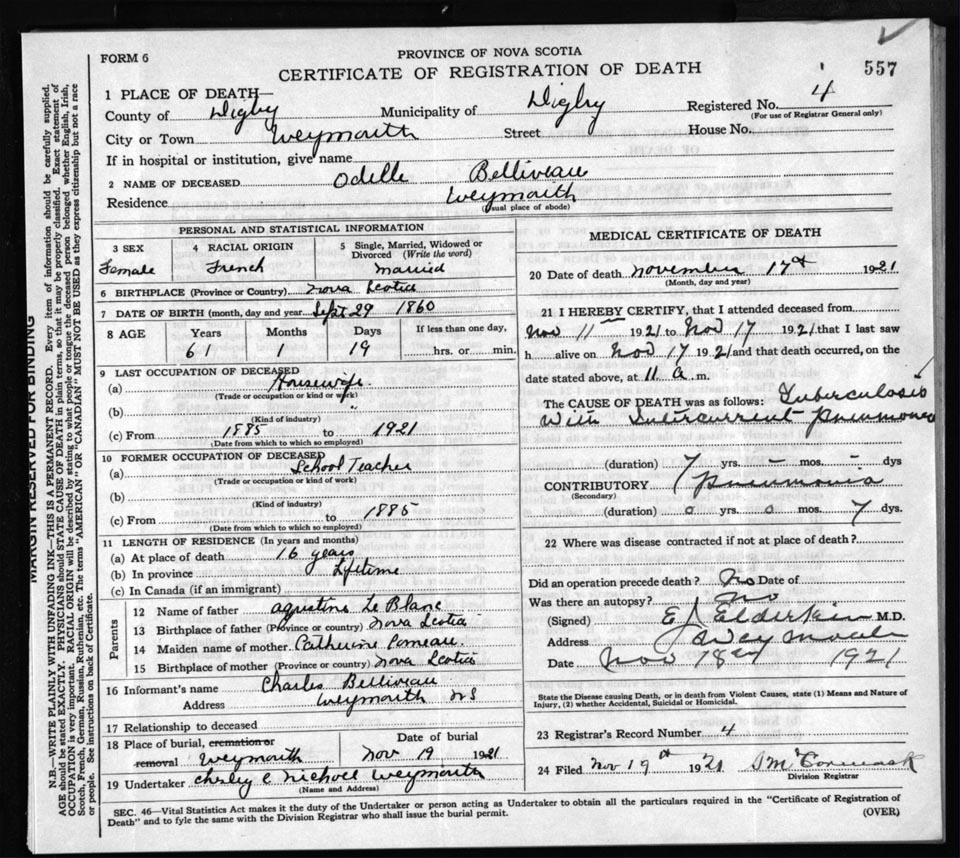 FORM 6
PROVINCE OF NOVA SCOTIA
CERTIFICATE OF REGISTRATION OF DEATH
557
1 PLACE OF DEATH—
County of Digby Municipality of Digby Registered No. 4
(For use of Registrar General only)
City or Town Weymouth Street House No.
If in hospital or institution, give name
2 NAME OF DECEASED Odelle Belliveau
Residence Weymouth
(Usual place of abode)
PERSONAL AND STATISTICAL INFORMATION
3 SEX
Female
4 RACIAL ORIGIN
French
5 Single, Married, Widowed or
Divorced (Write the word)
Married
6 BIRTHPLACE (Province or Country) Nova Scotia
7 DATE OF BIRTH (month, day and year) Sept 29 1860
8 AGE
Years
61
Months
1
Days
19
If less than one day,
hrs. or min.
9 LAST OCCUPATION OF DECEASED
(a) Housewife
(Trade or occupation or kind of work)
(b) "
(Kind of industry)
(c) From 1885 to 1921
(Date from which to which so employed)
10 FORMER OCCUPATION OF DECEASED
(a) School Teacher
(Trade or occupation or kind of work)
(b)
(Kind of industry)
(c) From to 1885
(Date from which to which so employed)
11 LENGTH OF RESIDENCE (In years and months)
(a) At place of death 16 years
(b) In province Lifetime
(c) In Canada (if an immigrant)
Parents
12 Name of father Agustine Le Blanc
13 Birthplace of father (Province or country) Nova Scotia
14 Maiden name of mother Catherine Comeau
15 Birthplace of mother (Province or country) Nova Scotia
16 Informant's name Charles Belliveau
Address Weymouth NS
17 Relationship to deceased
18 Place of burial, cremation or Date of burial
removal Weymouth Nov 19 1921
19 Undertaker Nicholl Weymouth
(Name and Address)
MEDICAL CERTIFICATE OF DEATH
20 Date of death November 17th 1921
(Month, day and year)
21 I HEREBY CERTIFY, that I attended deceased from
Nov 11 1921 to Nov 17 1921 that I last saw
h alive on Nov 17 1921 and that death occurred, on the
date stated above, at 11 a m.
The CAUSE OF DEATH was as follows: Tuberculosis
With Intercurrent Pneumonia
(duration) 7 yrs. - mos. - dys
CONTRIBUTORY Pneumonia
(Secondary)
(duration) 0 yrs. 0 mos. 7 dys.
22 Where was disease contracted if not at place of death?
Did an operation precede death? No Date of
Was there an autopsy? No
(Signed) E J Elderkin M.D.
Address Weymouth
Date Nov 18th 1921
State the Disease causing Death, or in death from Violent Causes, state (1) Means and Nature of
Injury, (2) whether Accidental, Suicidal or Homicidal.
23 Registrar's Record Number 4
24 Filed Nov 19th 1921 S McCormack
Division Registrar
SEC. 46—Vital Statistics Act makes it the duty of the Undertaker or person acting as Undertaker to obtain all the particulars required in the "Certificate of Registration of
Death" and to fyle the same with the Division Registrar who shall issue the burial permit.
(OVER)
MARGIN RESERVED FOR BINDING
N.B.—WRITE PLAINLY WITH UNFADING INK—THIS IS A PERMANENT RECORD. Every item of information should be carefully supplied.
AGE should be stated EXACTLY. PHYSICIANS should STATE CAUSE OF DEATH in plain terms, so that it may be properly classified. Exact statement of
OCCUPATION is very important. RACIAL ORIGIN will be described by stating to what people or tongue the deceased person belonged, whether English, Irish,
Scotch, French, German, Russian, Ruthenian, etc. The terms "AMERICAN" OR "CANADIAN" MUST NOT BE USED as they express citizenship but not a race
or people. See instructions on back of Certificate.